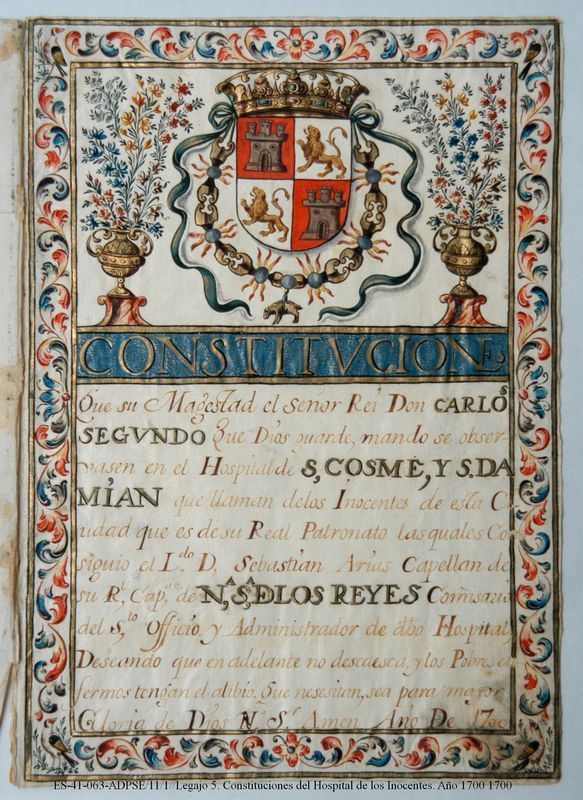 CONSTITVCIONEs
Que su Magestad el Señor Rei Don CARLOS
SEGVNDO Que Dios guarde, mando se obser-
vasen en el Hospital de S, COSME, Y S. DA
MIAN que llaman delos Inocentes de esta Ci
udad que es de su Real Patronato las quales Con
siguio el L.do D, Sebastian Arias Capellan de
su R.l Cap.a de N.A S.A D LOS REYES Comisario
del S.to Officio, y Administrador de dho Hospital,
Deseando que en adelante no descaesca, y los Pobres en
fermos tengan el alibio, Que nesesitan, sea para mayor
Gloria de Dios N, S.r Amen Ano De 1700
ES-41-063-ADPSE/11/1/Legajo 5. Constituciones del Hospital de los Inocentes. Año 1700 1700